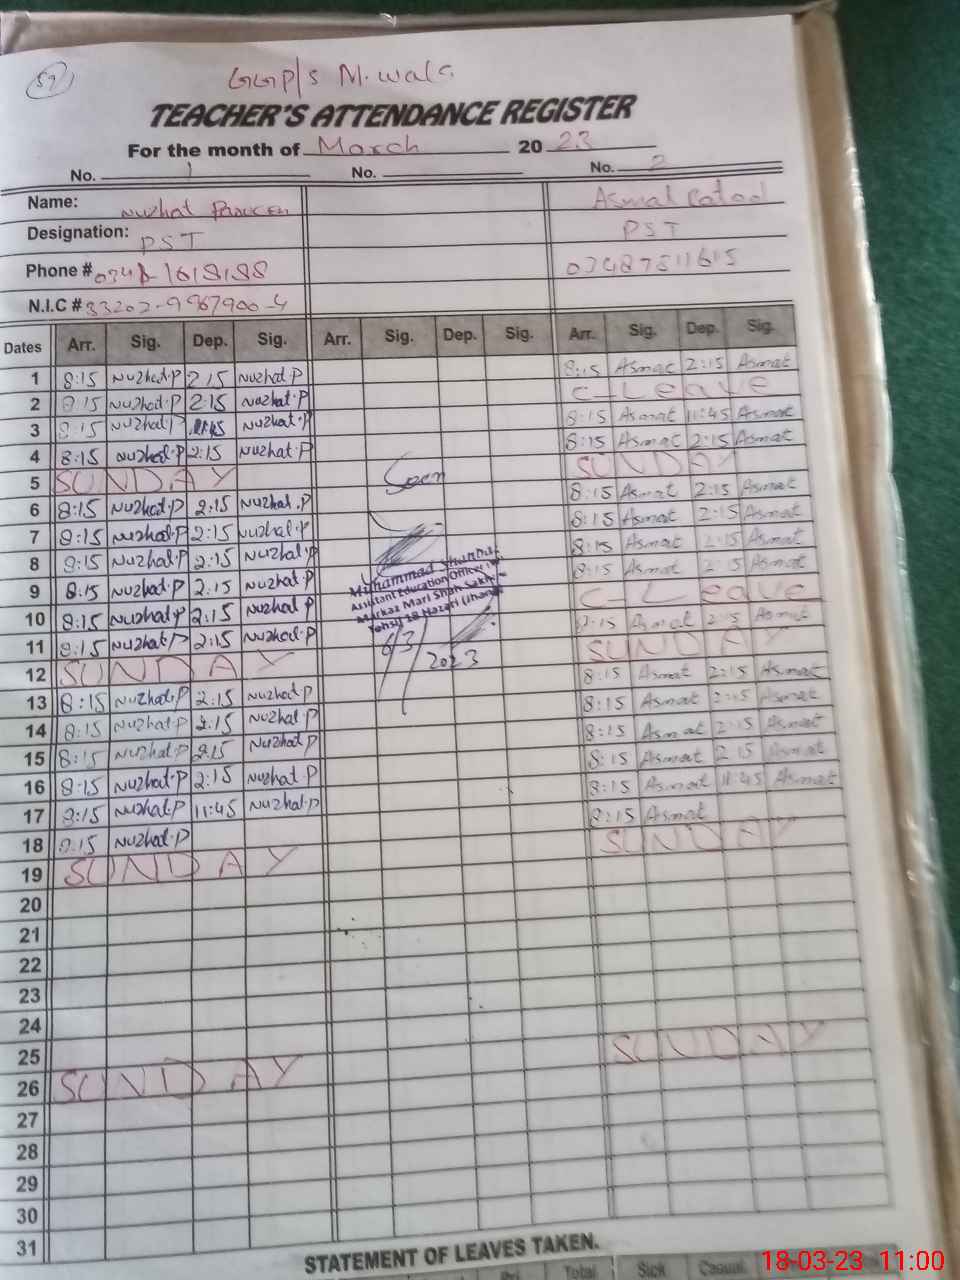 59
GGP/S M.wala
TEACHER'S ATTENDANCE REGISTER
For the month of March 2023
No. 1 No. No. 2
Name: Nuzhat Parveen Asmat Batool
Designation: PST PST
Phone # 0348-1618188 03487511615
N.I.C # 33202-9967900-4
Dates Arr. Sig. Dep. Sig. Arr. Sig. Dep. Sig. Arr. Sig. Dep. Sig.
1 8:15 Nuzhat.P 2:15 Nuzhat.P 8:15 Asmat 2:15 Asmat
2 8:15 Nuzhat.P 2:15 Nuzhat.P C-Leave
3 8:15 Nuzhat.P 11:45 Nuzhat.P 8:15 Asmat 11:45 Asmat
4 8:15 Nuzhat.P 2:15 Nuzhat.P 8:15 Asmat 2:15 Asmat
5 SUNDAY Seen SUNDAY
6 8:15 Nuzhat.P 2:15 Nuzhat.P 8:15 Asmat 2:15 Asmat
7 8:15 Nuzhat.P 2:15 Nuzhat.P 8:15 Asmat 2:15 Asmat
8 8:15 Nuzhat.P 2:15 Nuzhat.P 8:15 Asmat 2:15 Asmat
9 8:15 Nuzhat.P 2:15 Nuzhat.P 8:15 Asmat 2:15 Asmat
Muhammad
Assistant Education Officer
Markaz Mari Shah Sakhira
Tehsil 18 Hazari (Jhang)
10 8:15 Nuzhat P 2:15 Nuzhat P C-Leave
11 8:15 Nuzhat P 2:15 Nuzhat P 8:15 Asmat 2:15 Asmat
12 SUNDAY 2023 SUNDAY
13 8:15 Nuzhat.P 2:15 Nuzhat P 8:15 Asmat 2:15 Asmat
14 8:15 Nuzhat P 2:15 Nuzhat P 8:15 Asmat 2:15 Asmat
15 8:15 Nuzhat P 2:15 Nuzhat P 8:15 Asmat 2:15 Asmat
16 8:15 Nuzhat.P 2:15 Nuzhat P 8:15 Asmat 2:15 Asmat
17 8:15 Nuzhat.P 11:45 Nuzhat.P 8:15 Asmat 11:45 Asmat
18 8:15 Nuzhat.P 8:15 Asmat
19 SUNDAY SUNDAY
20
21
22
23
24
25
26 SUNDAY SUNDAY
27
28
29
30
31
STATEMENT OF LEAVES TAKEN.
Total Sick Casual
18-03-23 11:00